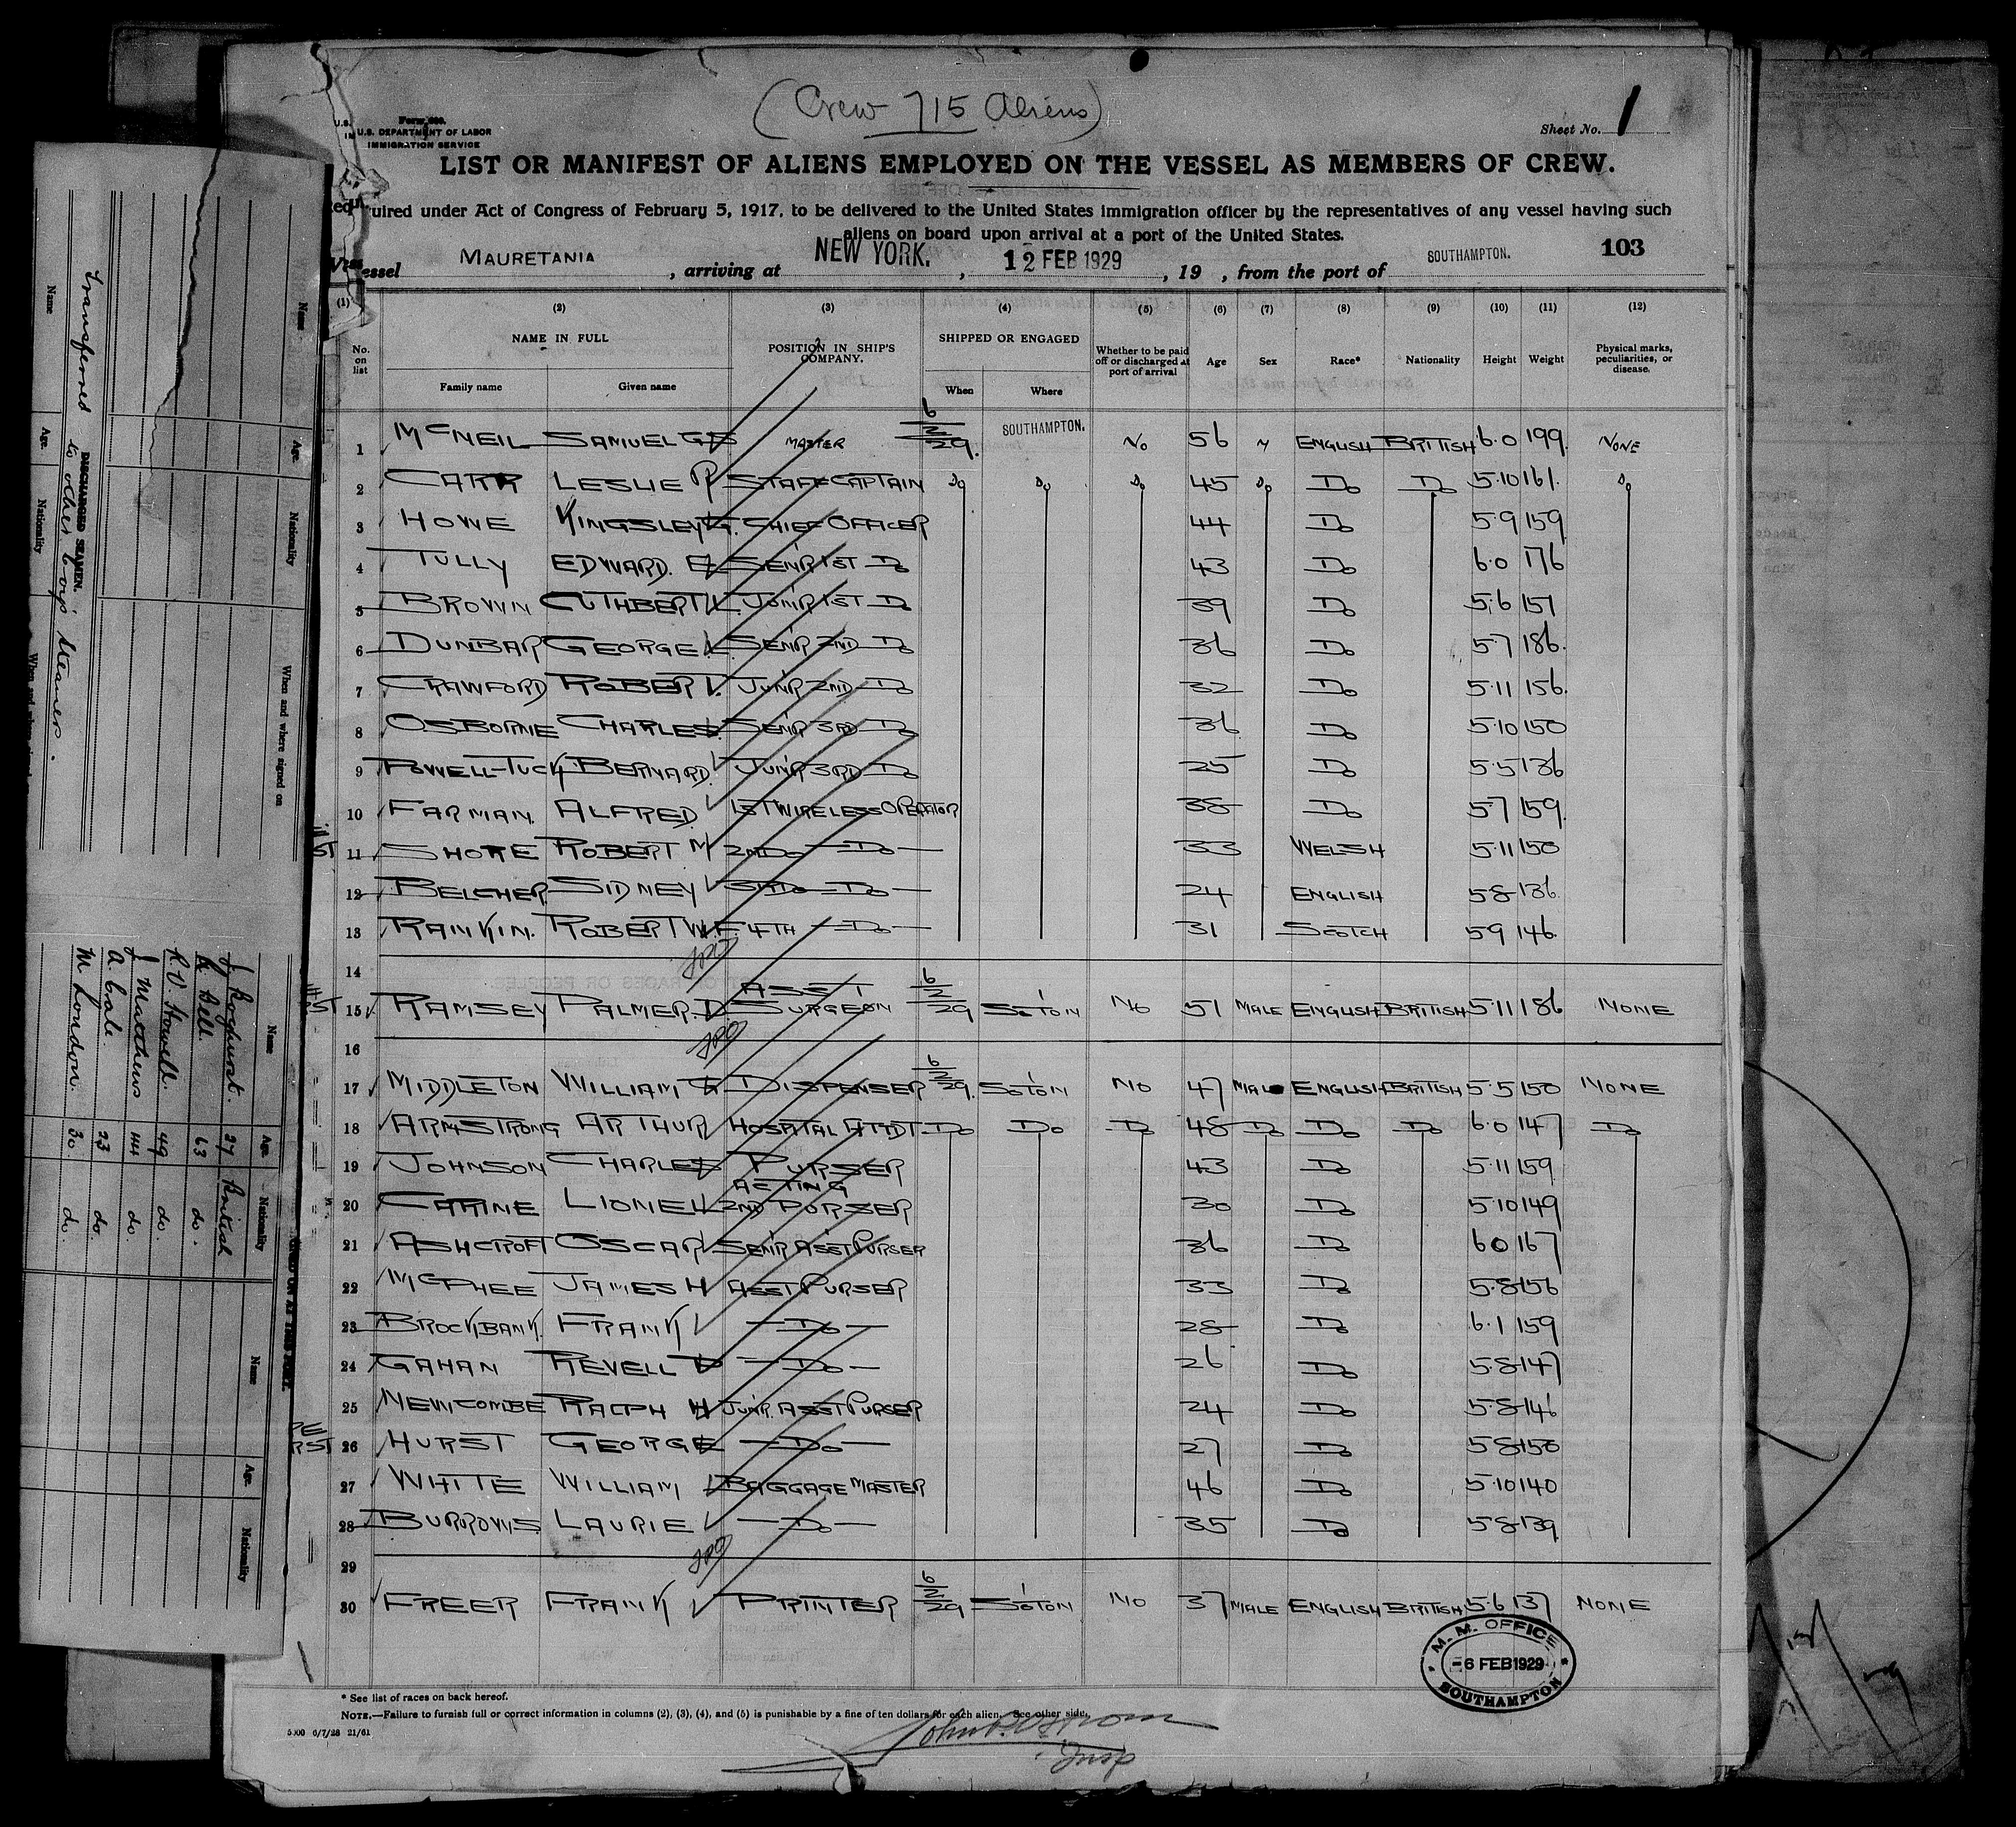 (Crew 715 Aliens)
Sheet No. 1
U.S. DEPARTMENT OF LABOR
IMMIGRATION SERVICE
LIST OR MANIFEST OF ALIENS EMPLOYED ON THE VESSEL AS MEMBERS OF CREW.
uired under Act of Congress of February 5, 1917, to be delivered to the United States immigration officer by the representatives of any vessel having such
aliens on board upon arrival at a port of the United States.
103
essel MAURETANIA, arriving at NEW YORK., 12 FEB 1929, 19 , from the port of SOUTHAMPTON.
(1) (2) (3) (4) (5) (6) (7) (8) (9) (10) (11) (12)
No. on list NAME IN FULL Family name Given name POSITION IN SHIP'S COMPANY. SHIPPED OR ENGAGED When Where Whether to be paid off or discharged at port of arrival Age Sex Race* Nationality Height Weight Physical marks, peculiarities, or disease.
1 MCNEIL SAMUEL G S MASTER 6/2/29. SOUTHAMPTON. NO 56 M ENGLISH BRITISH 6.0 199. NONE
2 CARR LESLIE R STAFF CAPTAIN Do Do Do 45 Do Do Do 5.10 161. Do
3 HOWE KINGSLEY G. CHIEF OFFICER 44 Do 5.9 159
4 TULLY EDWARD. E SEN'R 1ST Do 43 Do 6.0 176
5 BROWN CUTHBERT JUN'R 1ST Do 39 Do 5.6 151
6 DUNBAR GEORGE SEN'R 2ND Do 36 Do 5.7 186.
7 CRAWFORD ROBERT JUN'R 2ND Do 32 Do 5.11 156.
8 OSBORNE CHARLES SEN'R 3RD Do 36 Do 5.10 150
9 POWELL-TUCK BERNARD JUN'R 3RD Do 25 Do 5.5 136
10 FARMAN. ALFRED. 1ST WIRELESS OPERATOR 38 Do 5.7 159.
11 SHORE ROBERT M 2ND Do Do 33 WELSH 5.11 150
12 BELCHER SIDNEY 3RD Do 24 ENGLISH 5.8 136.
13 RANKIN. ROBERT W.F. 4TH Do 31 SCOTCH 5 9 146.
14
15 RAMSEY PALMER. D ASS'T SURGEON 6/2/29 S'OTON NO 51 MALE ENGLISH BRITISH 5.11 186 NONE
16
17 MIDDLETON WILLIAM G DISPENSER 6/2/29. S'OTON NO 47 MALE ENGLISH BRITISH 5.5 150 NONE
18 ARMSTRONG ARTHUR HOSPITAL ATTDT Do Do Do 48 Do Do Do 6.0 147 Do
19 JOHNSON CHARLES PURSER 43 Do 5.11 159
20 CARINE LIONEL ACTING 2ND PURSER 30 Do 5.10 149
21 ASHCROFT OSCAR SEN'R ASST PURSER 36 Do 6 0 167
22 MCPHEE JAMES H ASST PURSER 33 Do 5.8 156
23 BROCKBANK. FRANK Do 28 Do 6.1 159
24 GAHAN REVELL Do 26 Do 5.8 147
25 NEWCOMBE RALPH H JUNR. ASST PURSER 24 Do 5.8 146
26 HURST GEORGE Do 27 Do 5.8 150
27 WHITE WILLIAM BAGGAGE MASTER 46 Do 5.10 140
28 BURROWS LAURIE Do 35 Do 5.8 139
29
30 FREER FRANK PRINTER 6/2/29 S'OTON NO 37 MALE ENGLISH BRITISH 5.6 137 NONE
M. M. OFFICE
-6 FEB 1929
SOUTHAMPTON
* See list of races on back hereof.
NOTE.—Failure to furnish full or correct information in columns (2), (3), (4), and (5) is punishable by a fine of ten dollars for each alien. See other side.
6/7/28 21/61
DISCHARGED SEAMEN.
Transferred to other Co's steamers.
Name Age. Nationality When and where signed on
Name Age. Nationality
27 British
Bell. 63 do.
R.V. Howell. 49 do.
J Matthews 44 do.
A. Cole. 23 do.
M. London. 30 do.
Name Age. Nationality